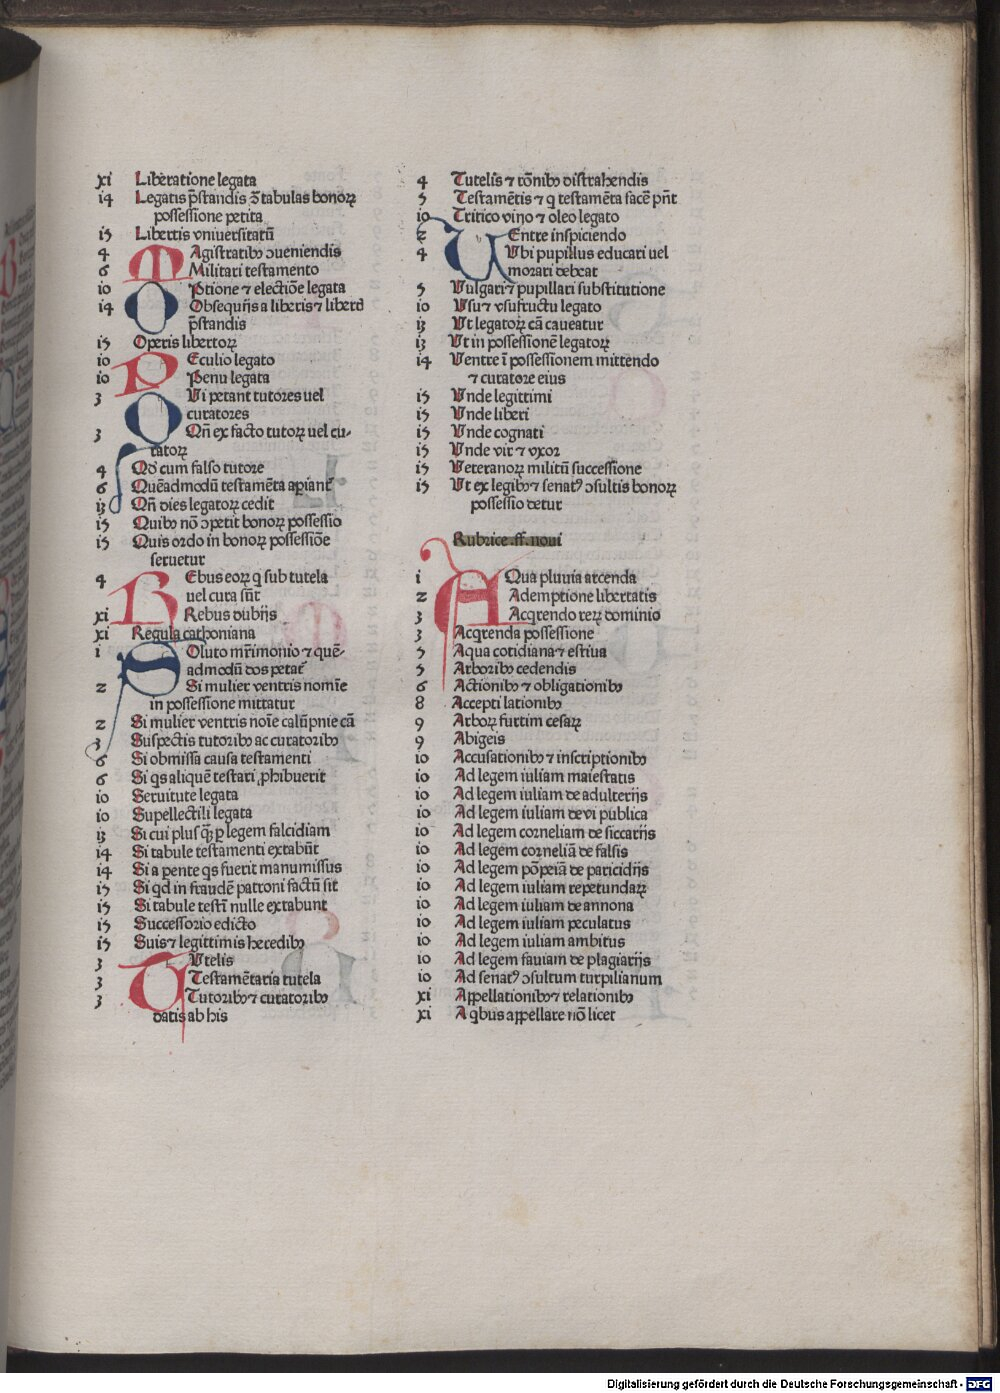 xi Liberatione legata
i4 Legatis p̄standis ɔ̄ tabulas bonorꝝ
possessione petita
i5 Libertis vniuersitatū
4 Magistratibꝰ ɔueniendis
6 Militari testamento
io Optione ⁊ electiōe legata
i4 Obsequijs a liberis ⁊ libert̄
p̄standis
i5 Operis libertorꝝ
io Peculio legato
io Penu legata
3 Qui petant tutores uel
curatores
3 Qn̄ ex facto tutorꝝ uel cu-
ratorꝝ
4 Qd' cum falso tutore
6 Quēadmodū testamēta apiant̄
i3 Qn̄ dies legatorꝝ cedit
i5 Quibꝰ nō ɔpetit bonorꝝ possessio
i5 Quis ordo in bonorꝝ possessiōe
seruetur
4 Rebus eorꝝ q sub tutela
uel cura sūt
xi Rebus dubijs
xi Regula cathoniana
i Soluto mr̄imonio ⁊ quē-
admodū dos petat̄
2 Si mulier ventris nomīe
in possessione mittatur
2 Si mulier ventris noīe calūpnie cā
3 Suspectis tutoribꝰ ac curatoribꝰ
6 Si obmissa causa testamenti
6 Si qs aliquē testari ꝓhibuerit
io Seruitute legata
io Supellectili legata
i3 Si cui plus q̄ꝫ p legem falcidiam
i4 Si tabule testamenti extabūt
i4 Si a pente qs fuerit manumissus
i5 Si qd in fraudē patroni factū sit
i5 Si tabule testī nulle extabunt
i5 Successorio edicto
i5 Suis ⁊ legittimis heredibꝰ
3 Tutelis
3 Testamētaria tutela
3 Tutoribꝰ ⁊ curatoribꝰ
datis ab his
4 Tutelis ⁊ rōnibꝰ distrahendis
5 Testamētis ⁊ q testamēta facē pn̄t
io Tritico vino ⁊ oleo legato
2 Uentre inspiciendo
4 Vbi pupillus educari uel
morari debeat
5 Vulgari ⁊ pupillari substitutione
io Vsu ⁊ vsufructu legato
i3 Vt legatorꝝ cā caueatur
i3 Vt in possessionē legatorꝝ
i4 Ventre ī possessionem mittendo
⁊ curatore eius
i5 Vnde legittimi
i5 Vnde liberi
i5 Vnde cognati
i5 Vnde vir ⁊ vxor
i5 Veteranorꝝ militū successione
i5 Vt ex legibꝰ ⁊ senatꝰ ɔsultis bonorꝝ
possessio detur
Rubrice .ff. noui
i Aqua pluuia arcenda
2 Ademptione libertatis
3 Acqrendo rerꝝ dominio
3 Acqrenda possessione
5 Aqua cotidiana ⁊ estiua
5 Arboribꝰ cedendis
6 Actionibꝰ ⁊ obligationibꝰ
8 Accepti lationibꝰ
9 Arborꝝ furtim cesarꝝ
9 Abigeis
io Accusationibꝰ ⁊ inscriptionibꝰ
io Ad legem iuliam maiestatis
io Ad legem iuliam de adulterijs
io Ad legem iuliam de vi publica
io Ad legem corneliam de siccarijs
io Ad legem corneliā de falsis
io Ad legem pōpeiā de paricidijs
io Ad legem iuliam repetundarꝝ
io Ad legem iuliam de annona
io Ad legem iuliam peculatus
io Ad legem iuliam ambitus
io Ad legem fauiam de plagiarijs
io Ad senatꝰ ɔsultum turpilianum
xi Appellationibꝰ ⁊ relationibꝰ
xi A qbus appellare nō licet
Digitalisierung gefördert durch die Deutsche Forschungsgemeinschaft - DFG